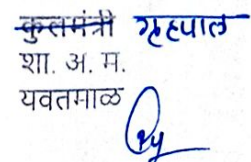 कुलमंत्री गृहपाल
शा. अ. म.
यवतमाळ